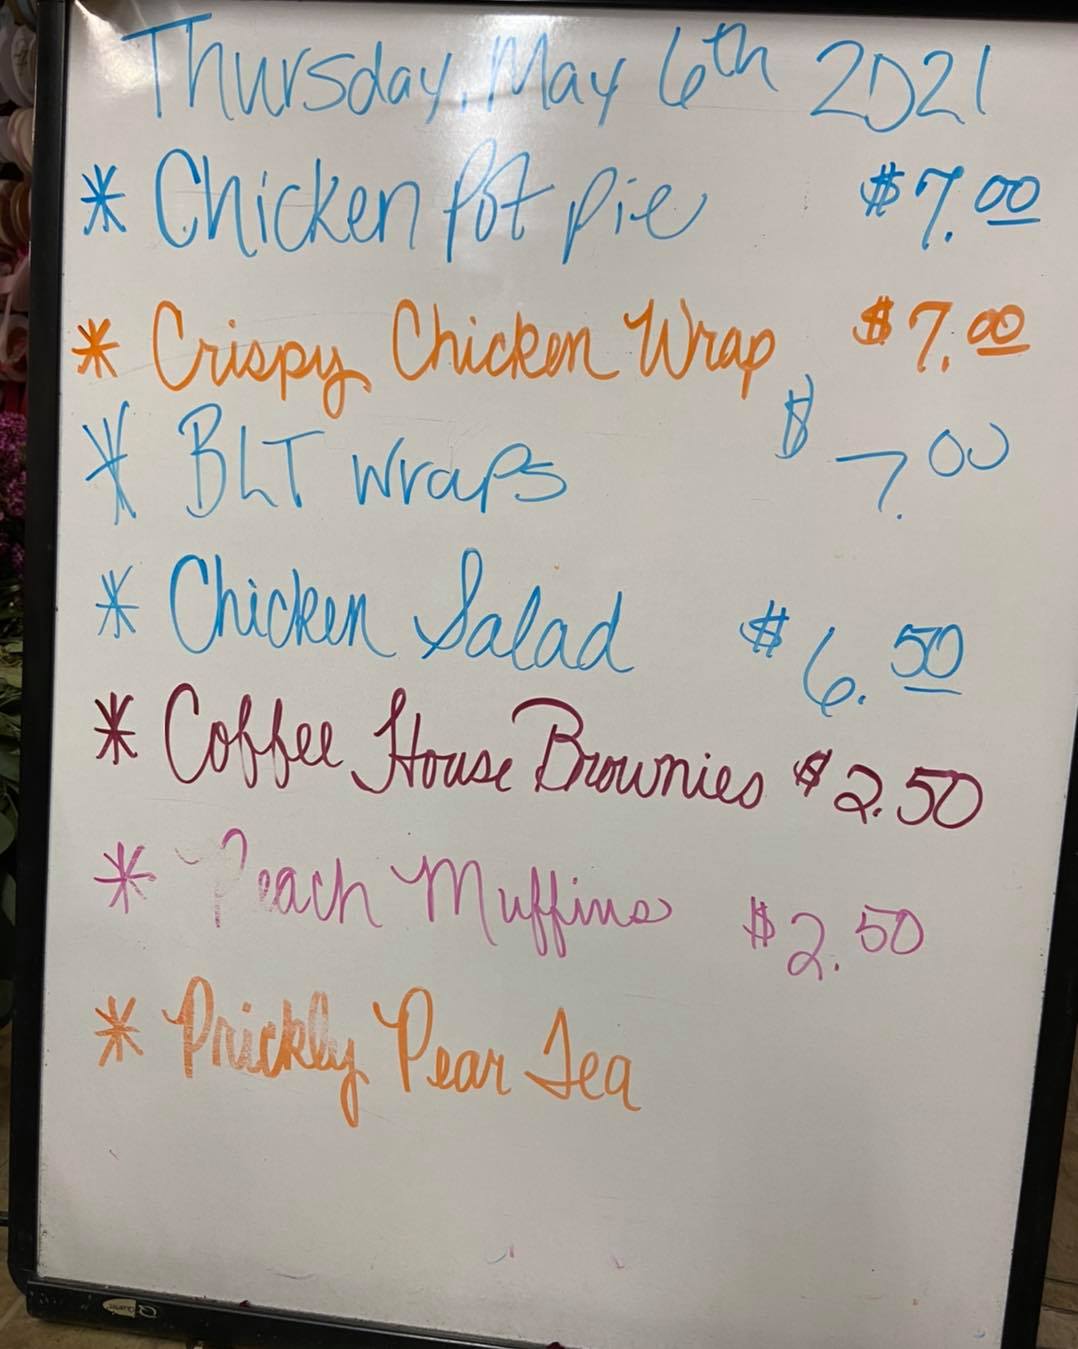 Thursday, May 6th 2021
* Chicken Pot Pie $7.00
* Crispy Chicken Wrap $7.00
* BLT wraps $7.00
* Chicken Salad $6.50
* Coffee House Brownies $2.50
* Peach Muffins $2.50
* Prickly Pear Tea
Quartet